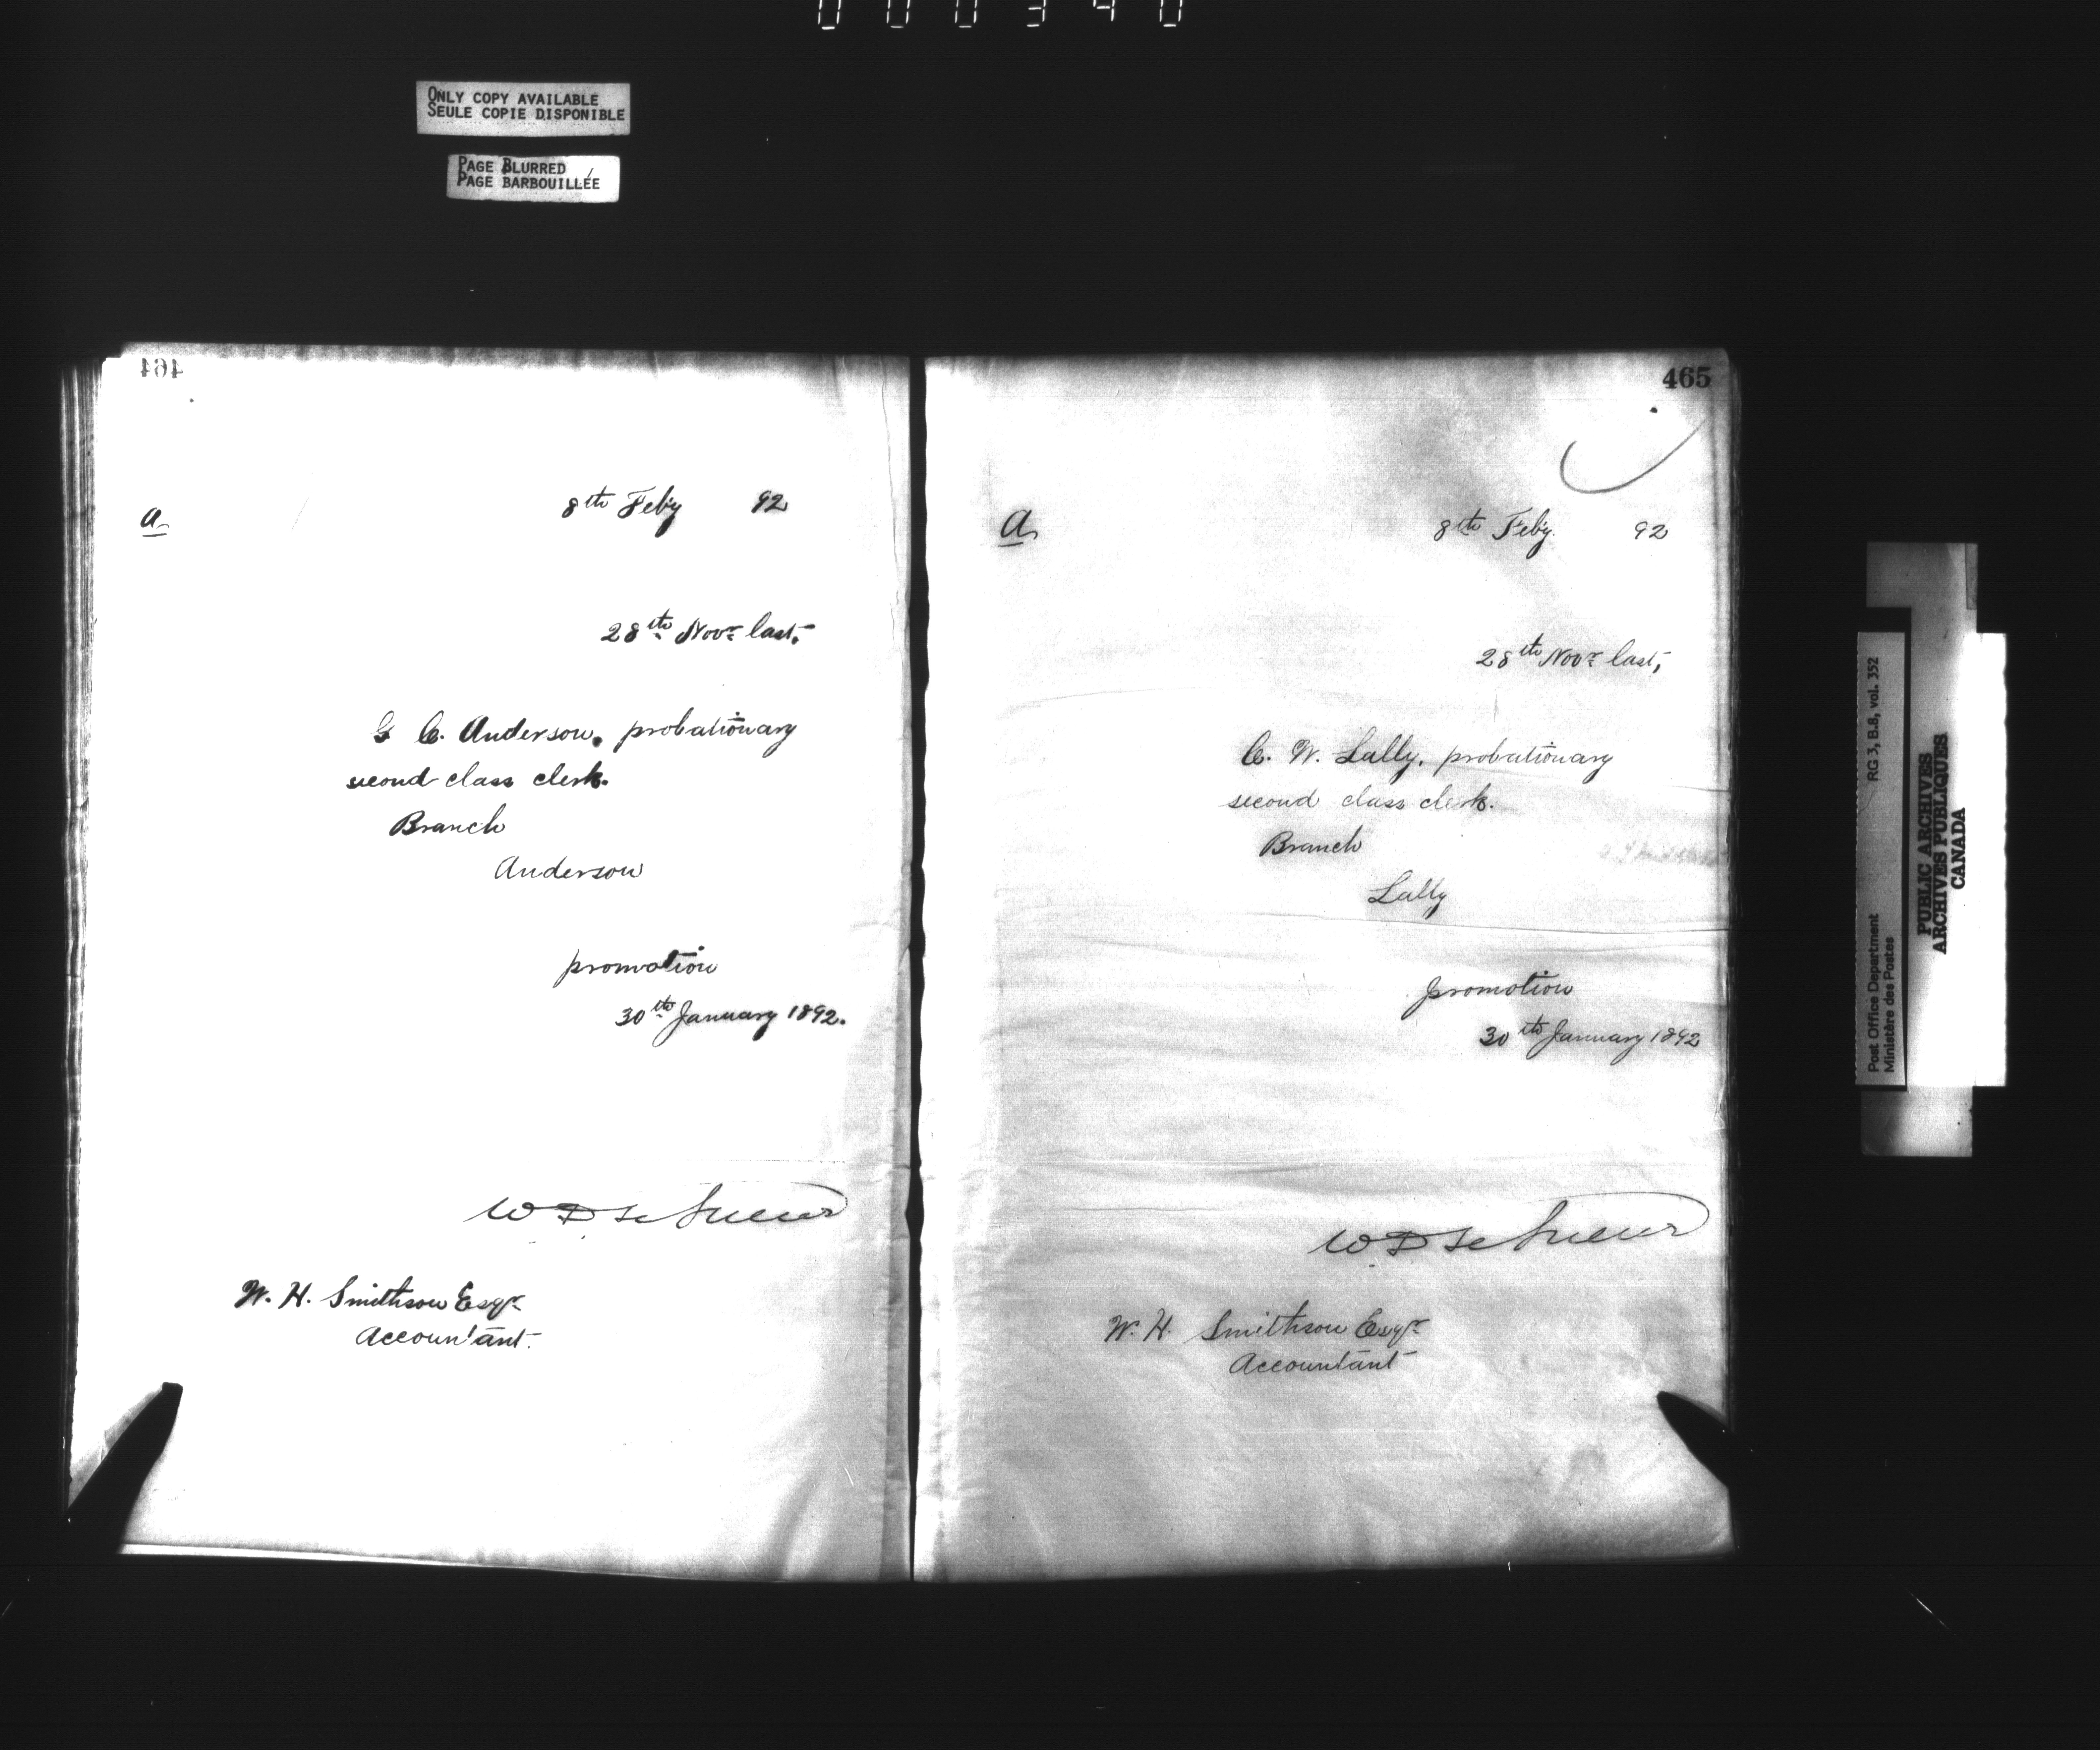 000340
ONLY COPY AVAILABLE
SEULE COPIE DISPONIBLE
PAGE BLURRED
PAGE BARBOUILLÉE
464
a
8th Feby 92
28th Novr last,
G C. Anderson, probationary
second class clerk.
Branch
Anderson
promotion
30th January 1892.
W D Le Sueur
W. H. Smithson Esqr
Accountant.
465
a
8th Feby. 92
28th Novr last,
C. W. Lally, probationary
second class clerk.
Branch
Lally
promotion
30th January 1892
W D Le Sueur
W. H. Smithson Esqr
Accountant
Post Office Department RG 3, B.8, vol. 352
Ministère des Postes
PUBLIC ARCHIVES
ARCHIVES PUBLIQUES
CANADA